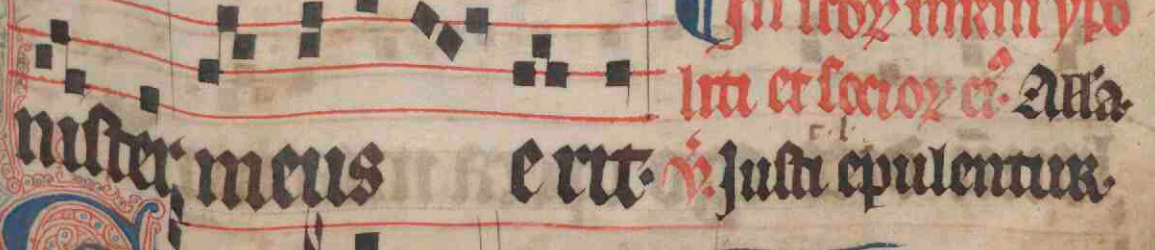 In scoꝝ mr̄m ypo
liti et socioꝝ ei᷒. Alla.
nister meus erit. ℣. Justi epulentur.